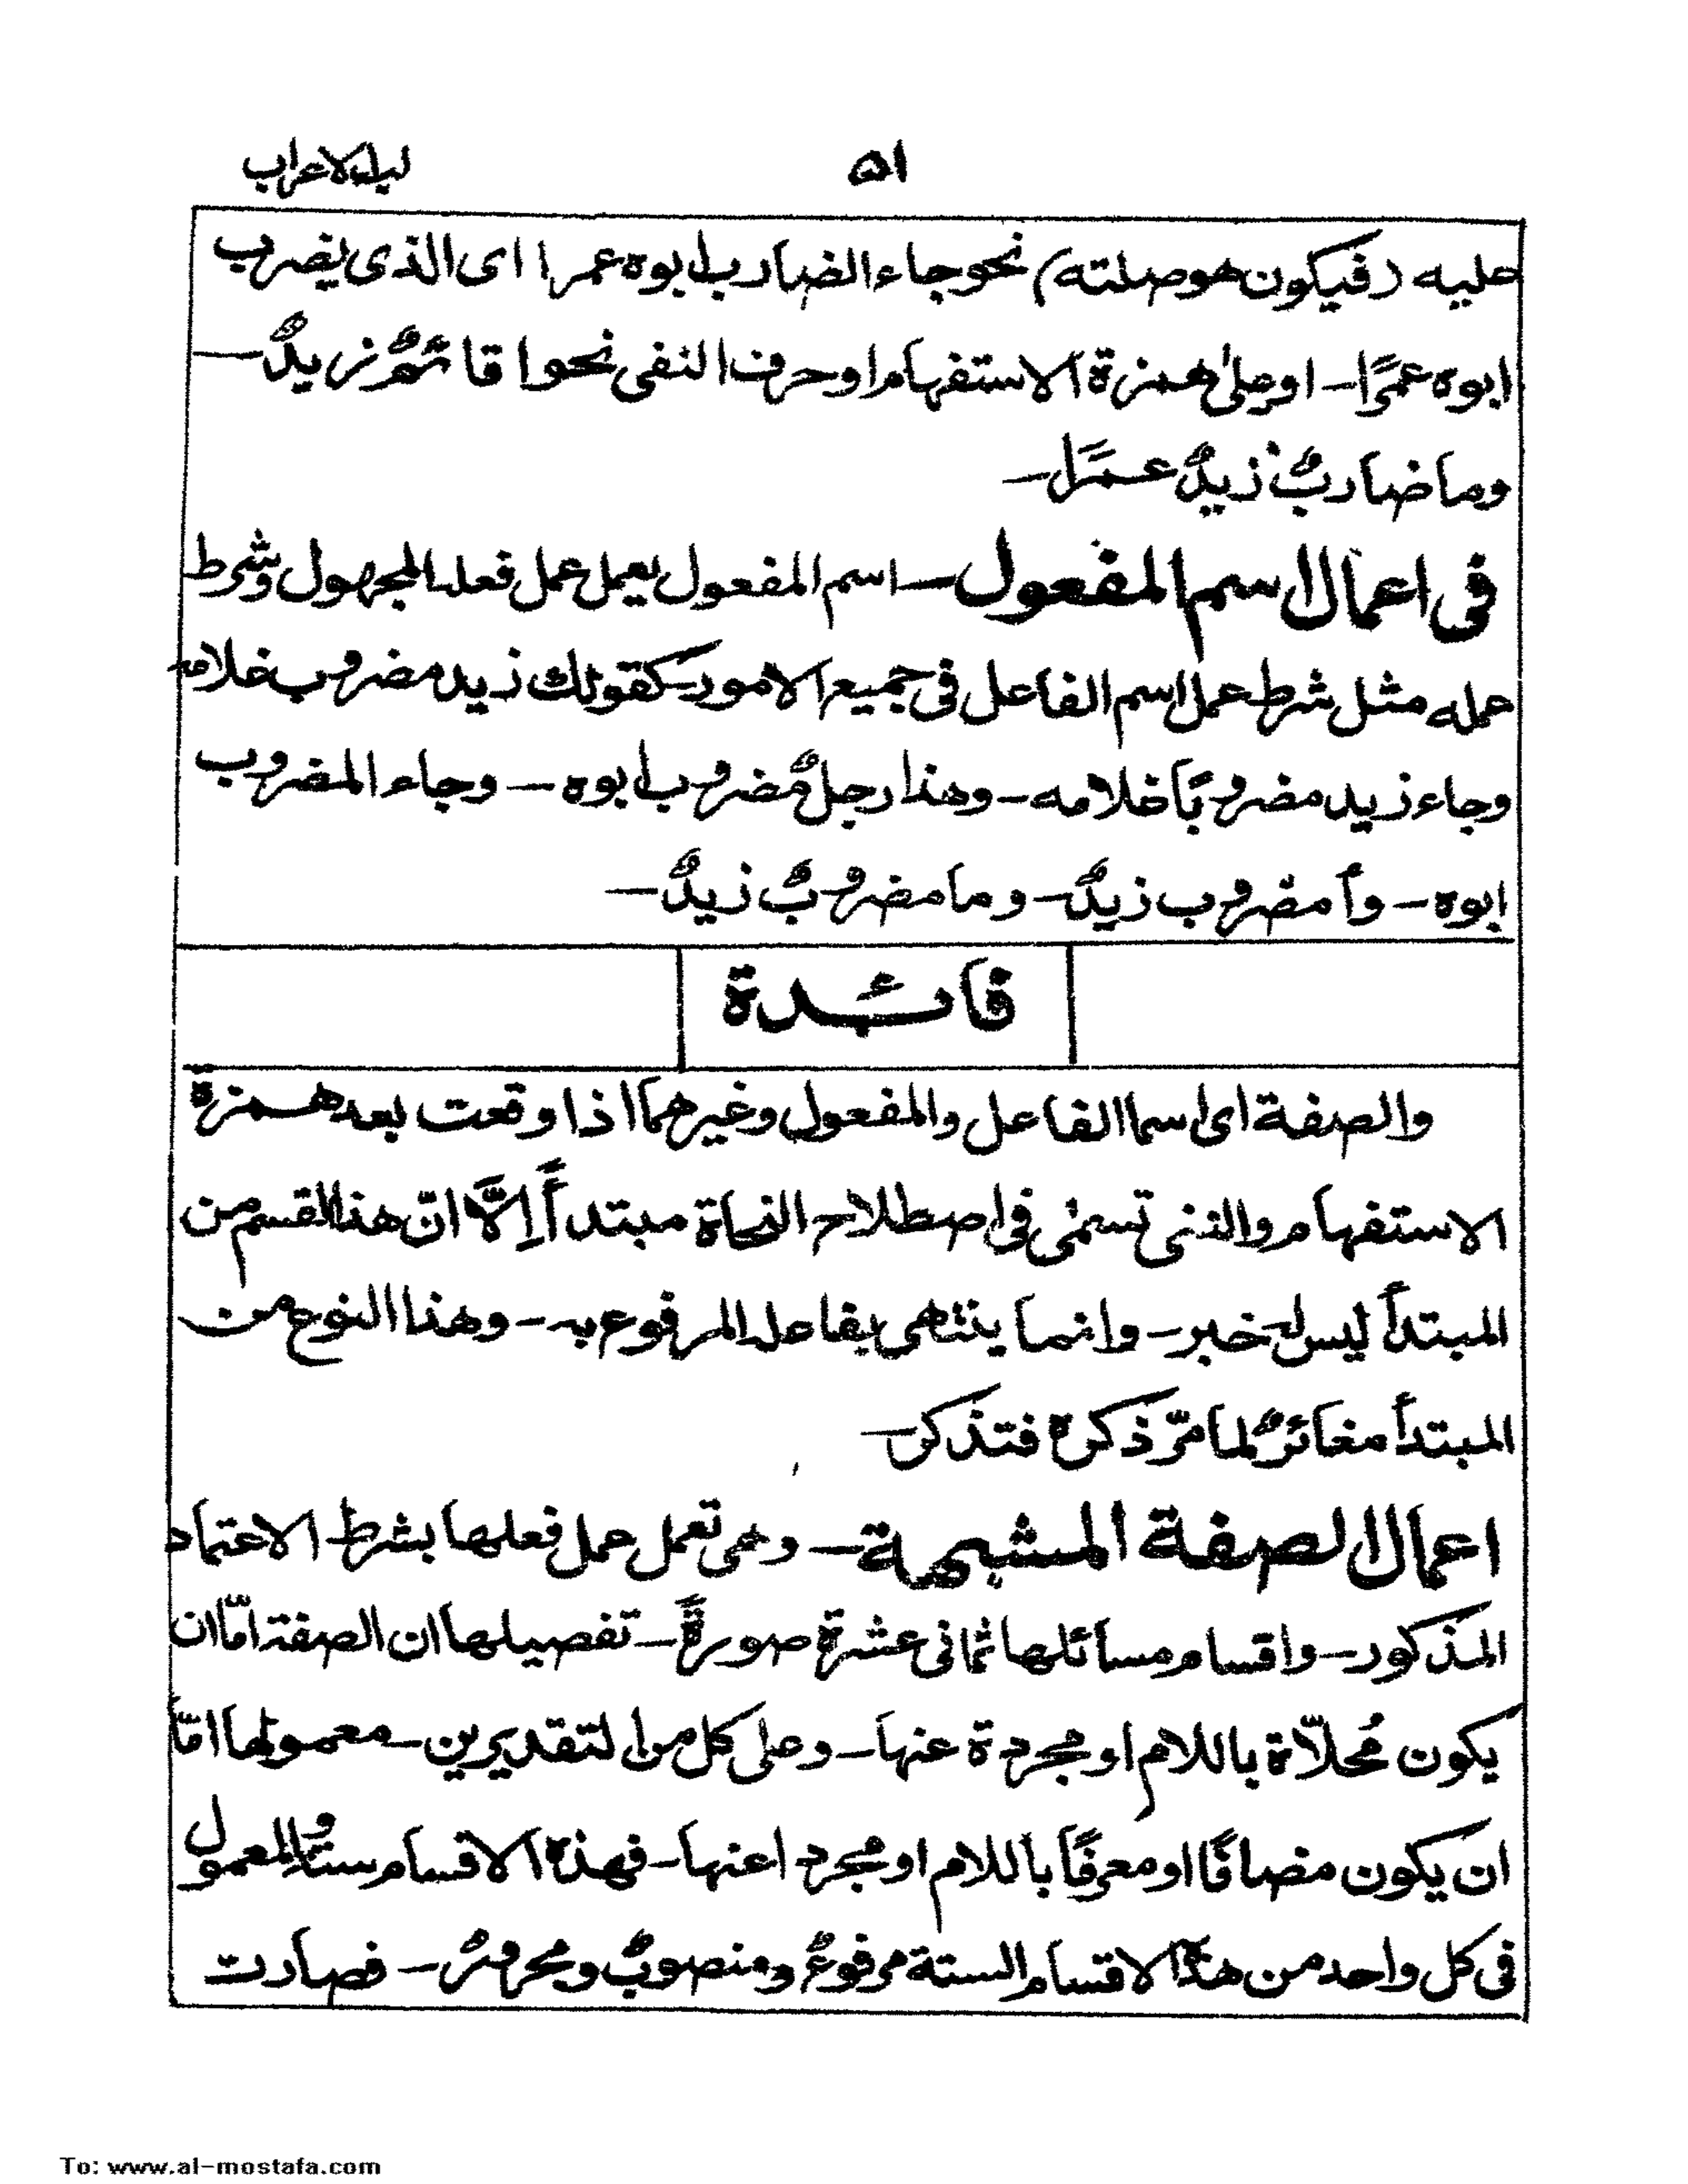 لباب الاعراب
۵۱
عليه (فيكون هو صلته) نحو جاء الضارب ابوه عمرا اى الذى يضرب
ابوه عمرًا - او على همزة الاستفهام او حرف النفى نحو ا قائمٌ زيدٌ -
وما ضاربٌ زيدٌ عمرًا -
فى اعمال اسم المفعول - اسم المفعول يعمل عمل فعله المجهول وشرط
عمله مثل شرط عمل اسم الفاعل فى جميع الامور كقولك زيد مضروب غلامه
وجاء زيد مضروبًا غلامه - وهذا رجلٌ مضروب ابوه - وجاء المضروب
ابوه - وأ مضروب زيدٌ - وما مضروبٌ زيدٌ -
فائدة
والصفة اى اسما الفاعل والمفعول وغيرهما اذا وقعت بعد همزة
الاستفهام والنفى تسمى فى اصطلاح النحاة مبتدأً إلّا انّ هذا القسم من
المبتدأ ليس له خبر - وانما ينتهى بفاعله المرفوع به - وهذا النوع من
المبتدأ مغائرٌ لما مرّ ذكره فتذكر -
اعمال الصفة المشبهة - وهى تعمل عمل فعلها بشرط الاعتماد
المذكور - واقسام مسائلها ثمانى عشرة صورةً - تفصيلها ان الصفة امّا ان
يكون مُحلّاة باللام او مجردة عنها - وعلى كل من التقديرين - معمولها امّا
ان يكون مضافًا او معرفًا باللام او مجردا عنها - فهذه الاقسام ستة والمعمول
فى كل واحد من هذه الاقسام الستة مرفوعٌ ومنصوبٌ ومجرورٌ - فصارت
To: www.al-mostafa.com